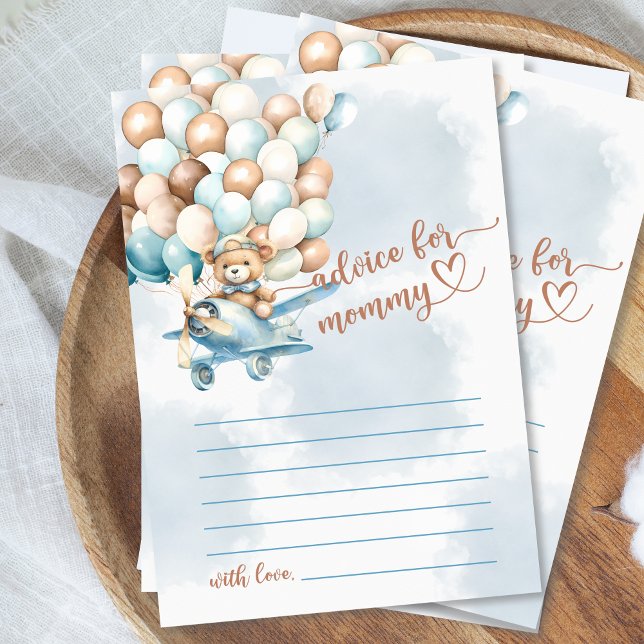 advice for
mommy
with love,
for